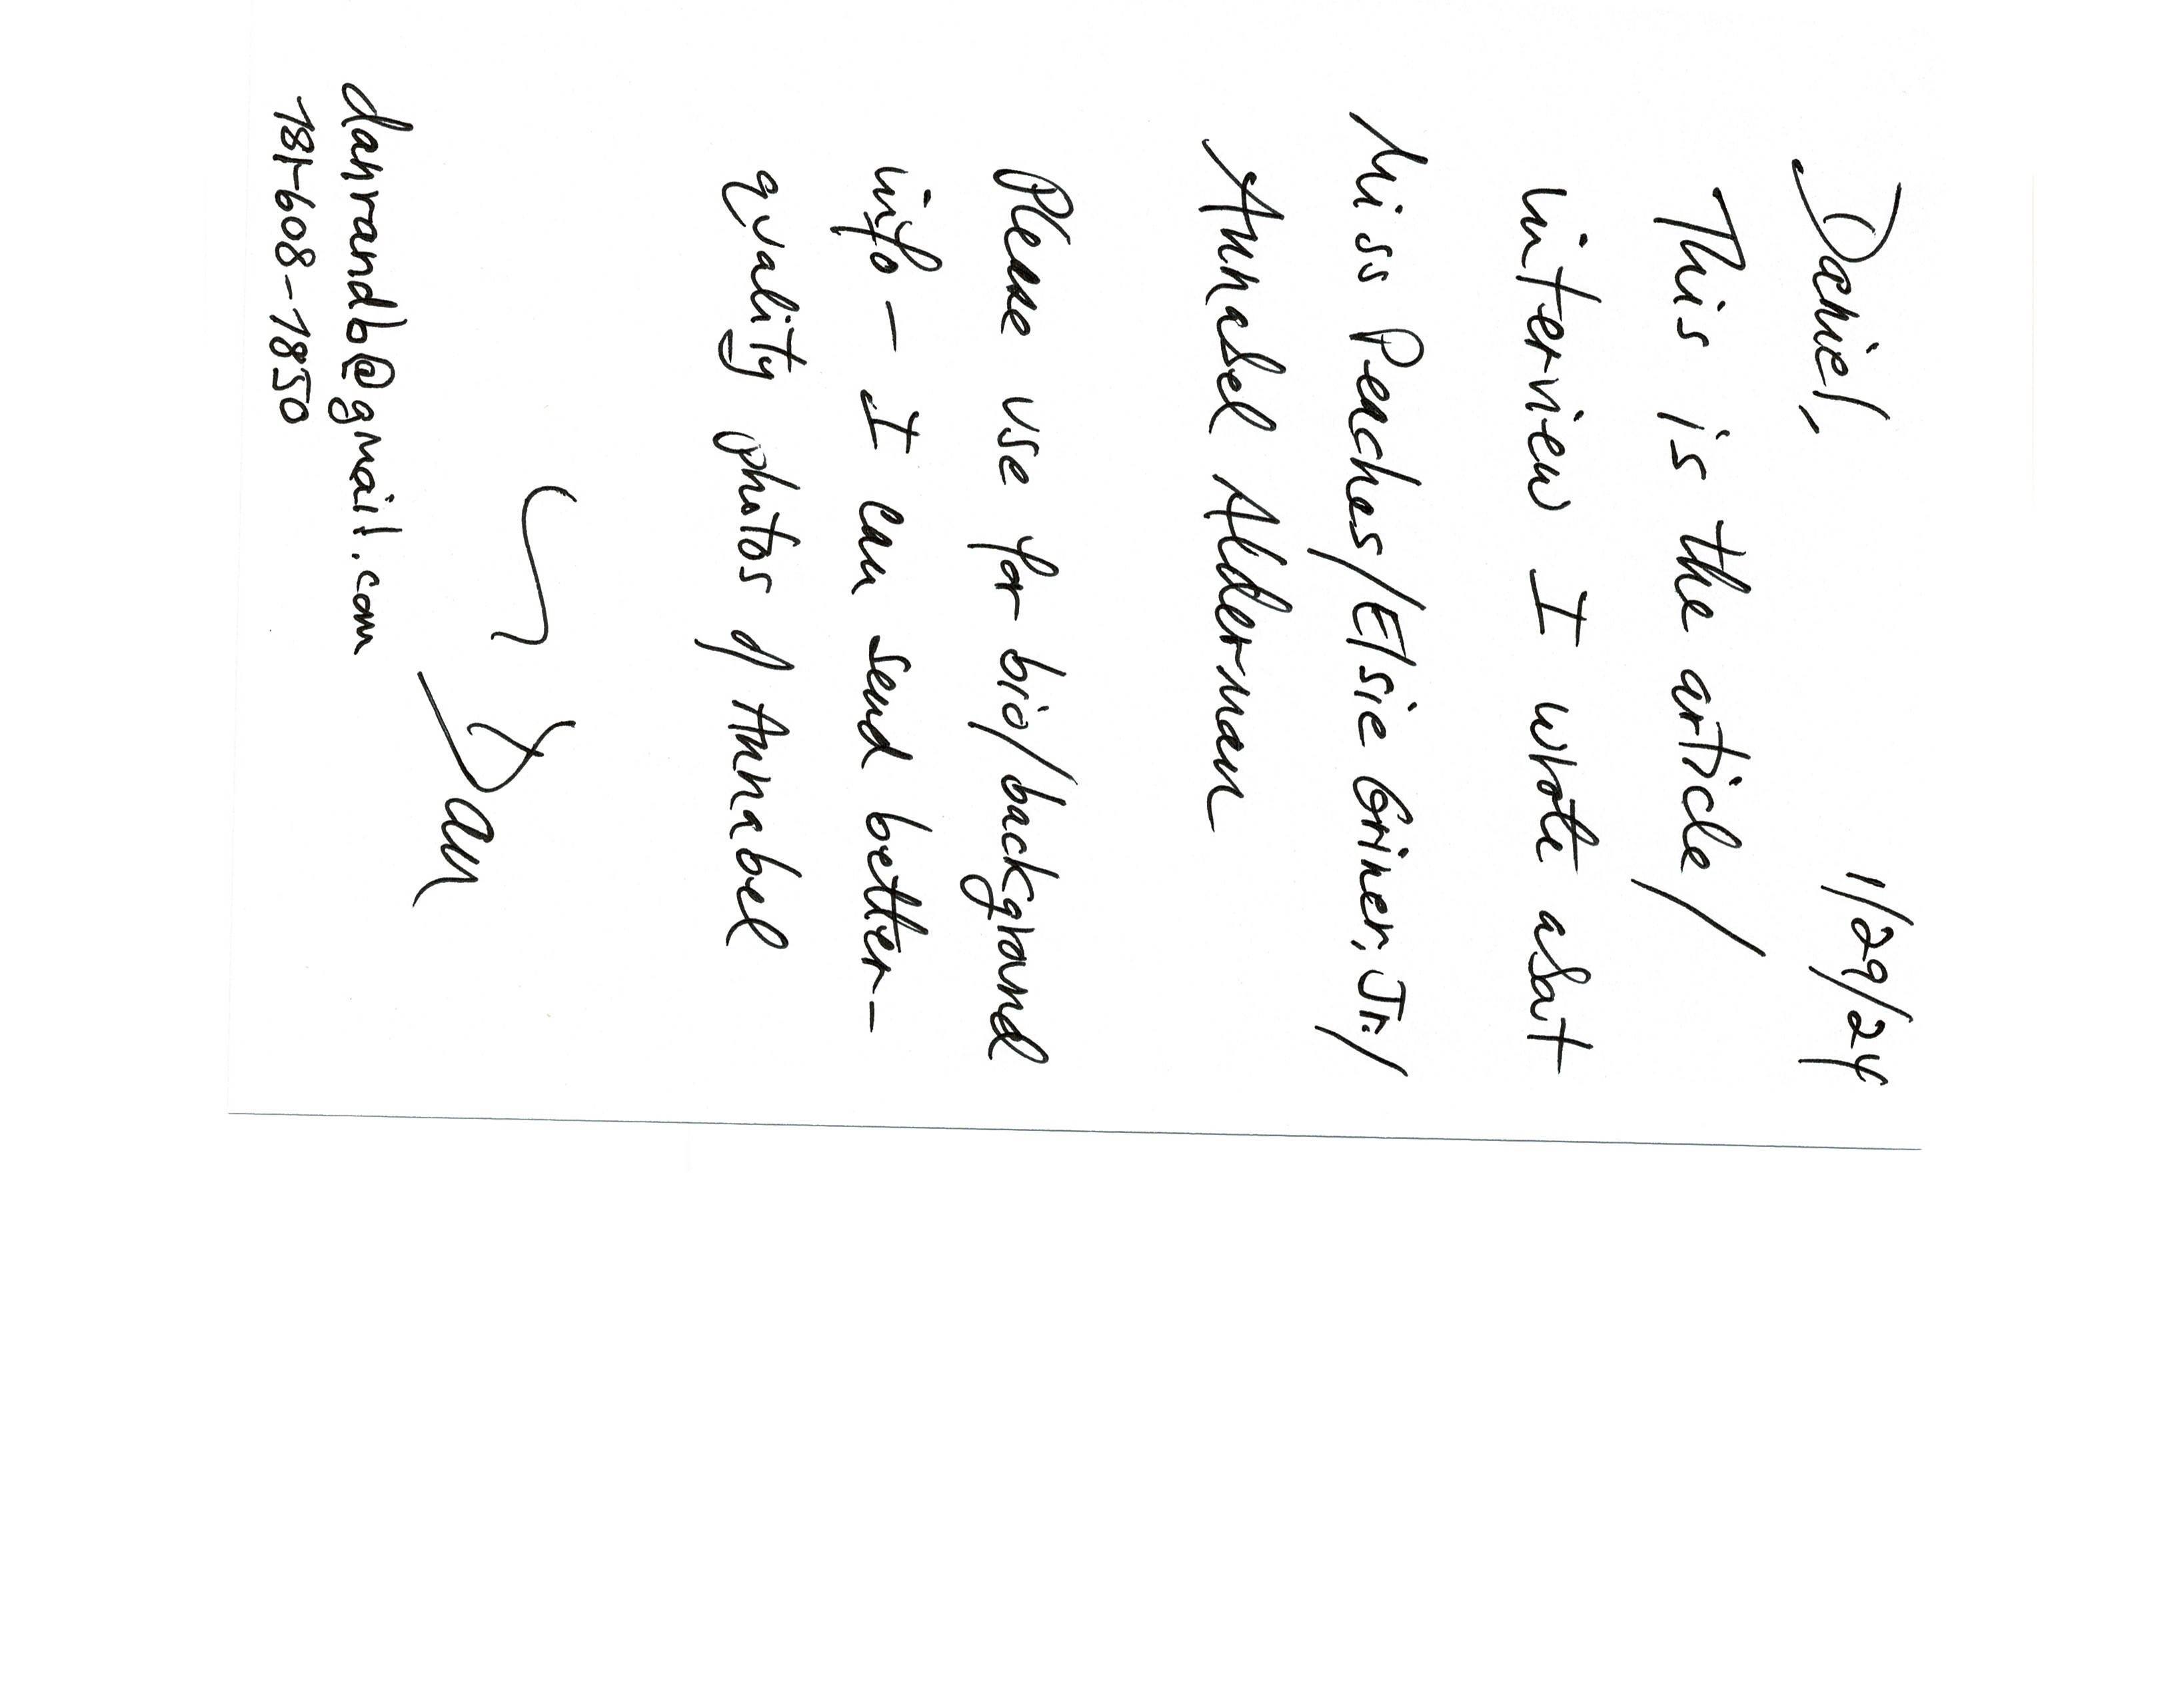 11/29/24
Daniel,
This is the article/
interview I wrote about
Miss Peaches/Elsie Griner, Jr./
Annabel Alderman
Please use for bio/background
info - I can send better-
quality photos of Annabel
Dan
danrandb@gmail.com
781-608-1850